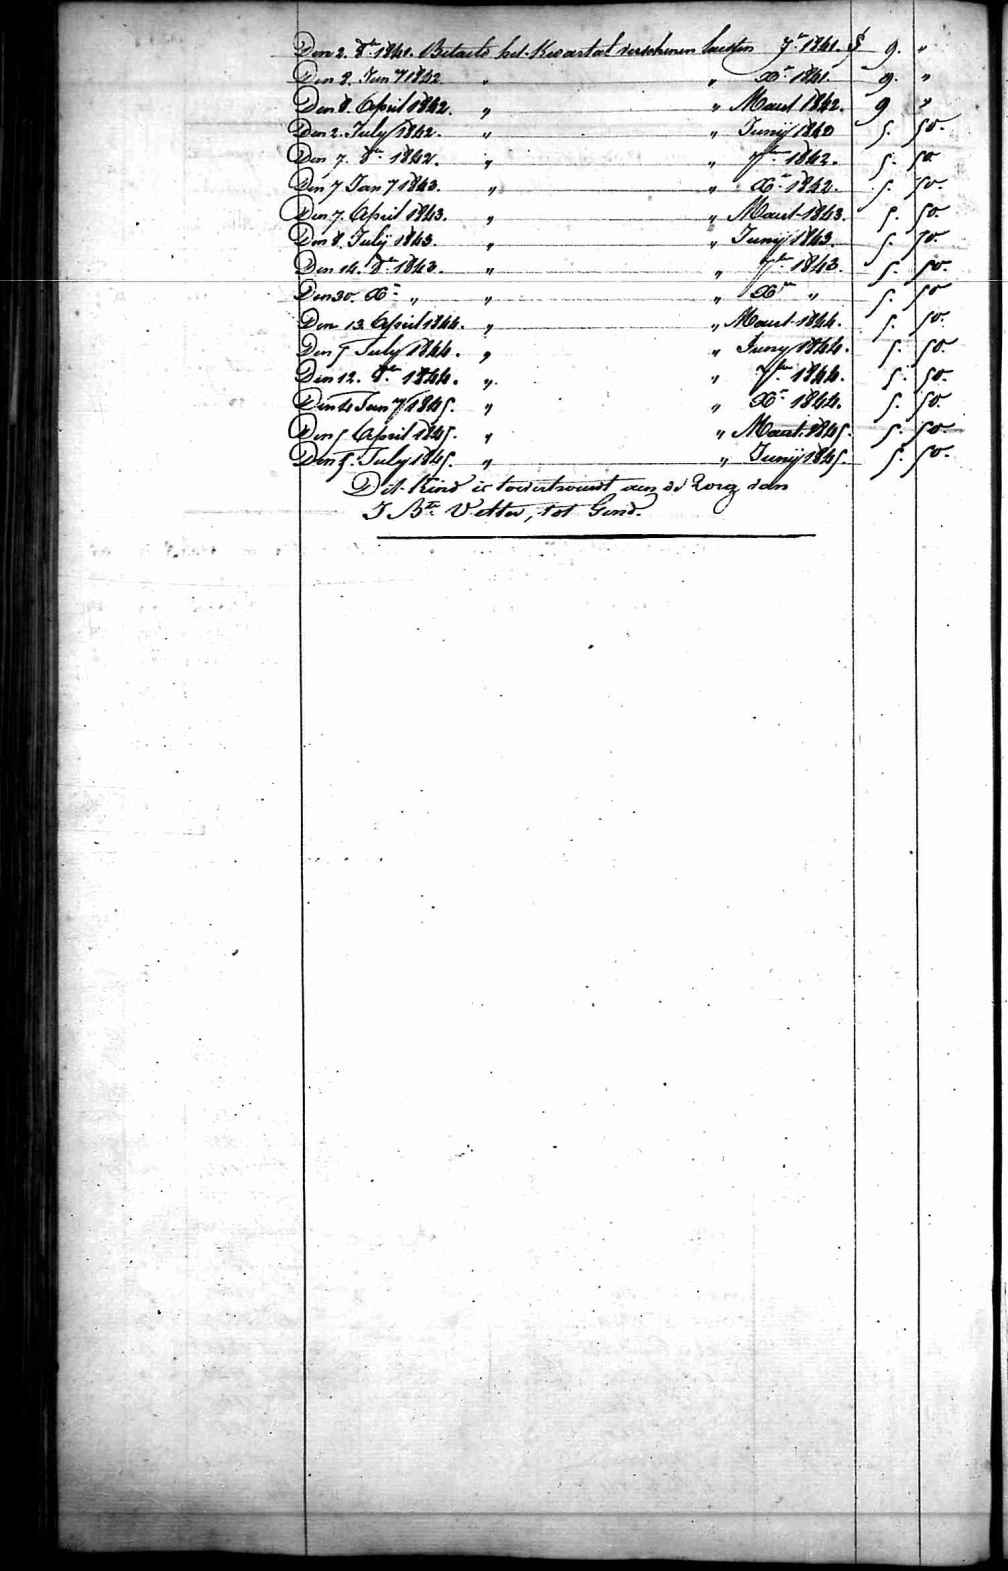 Den 2. 8.r 1841. Betaelt het Kwartael verschenen laesten 7.r 1841. § 9. "
Den 8. Jan 7 1842 " " X.r 1841. 9. "
Den 8. April 1842. " " Maart 1842. 9 "
Den 2. July 1842. " " Junij 1842 5. 50.
Den 7. 8.r 1842. " " 7.r 1842. 5. 50
Den 7 Jan 7 1843. " " X.r 1842. 5. 50.
Den 7. April 1843. " " Maart 1843. 5. 50
Den 8. July 1843. " " Junij 1843. 5. 50.
Den 14. 8.r 1843. " " 7.r 1843. 5. 50.
Den 30. X.r " " " X.r " 5. 50
Den 13. April 1844. " " Maart 1844. 5. 50.
Den 5 July 1844. " " Juny 1844. 5. 50.
Den 12. 8.r 1844. " " 7.r 1844. 5. 50.
Den 4 Jan 7 1845. " " X.r 1844. 5. 50.
Den 5 April 1845. " " Maart 1845. 5. 50.
Den 5. July 1845. " " Junij 1845. 5. 50.
Dit Kind is toevertrouwt aen de Zorg van
J B.te Vetter, tot Gend.